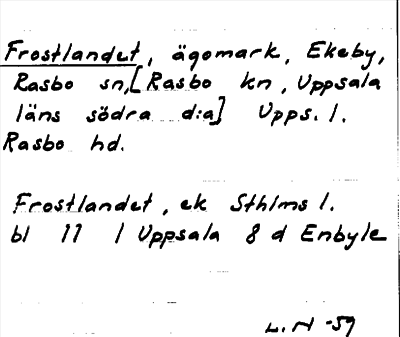 Frostlandet, ägomark, Ekeby,
Rasbo sn, [Rasbo kn, Uppsala
läns södra d:a] Upps. l.
Rasbo hd.
Frostlandet, ek Sthlms l.
bl 11 l Uppsala 8 d Enbyle
L.N -59